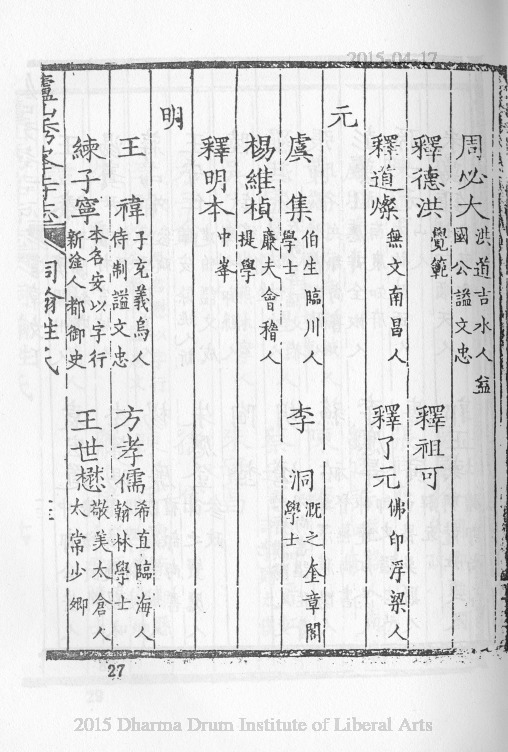 2015-04-17
周必大 洪道吉水人益
國公謚文忠
釋德洪 覺範
釋祖可
釋道燦 無文南昌人
釋了元 佛印浮梁人
元
虞集 伯生臨川人
學士
李洞 溉之奎章閣
學士
楊維楨 廉夫會稽人
提學
釋明本 中峯
明
王禕 子充義烏人
待制謚文忠
方孝儒 希直臨海人
翰林學士
練子寧 本名安以字行
新淦人都御史
王世懋 敬美太倉人
太常少卿
廬山秀峯寺志 詞翰姓氏
27
2015 Dharma Drum Institute of Liberal Arts